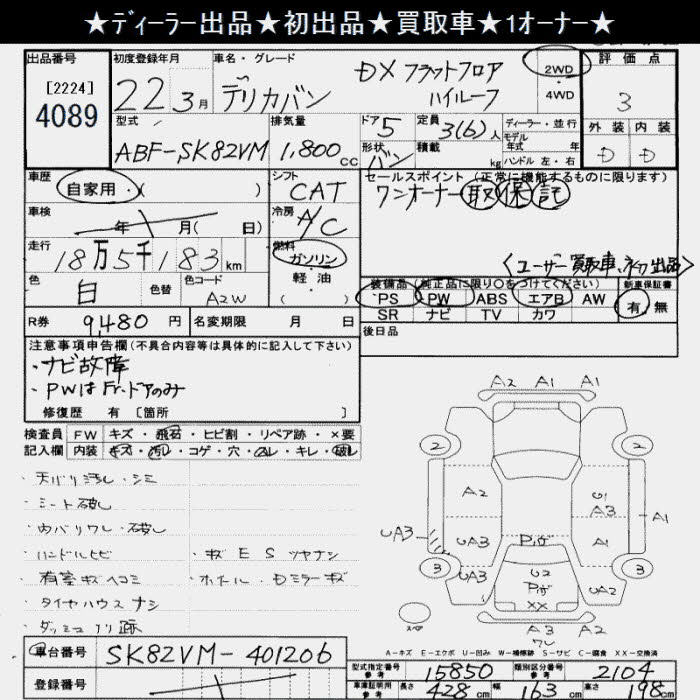 ★ディーラー出品★初出品★買取車★1オーナー★
出品番号 [2224] 4089
初度登録年月 22年 3月
車名・グレード デリカバン DX フラットフロア ハイルーフ
2WD ・ 4WD
評価点 3
外装 D 内装 D
型式 ABF-SK82VM
排気量 1,800cc
ドア 5 形状 バン
定員 3(6)人 積載 kg
ディーラー・並行
モデル年式 年
ハンドル 左・右
車歴 自家用・( )
シフト CAT
セールスポイント(正常に機能するものに限ります)
ワンオーナー 取 保 記
<ユーザー買取車、初出品>
車検 年 月( 日)
冷房 A/C
走行 18万5千183km
燃料 ガソリン・軽油・( )
色 白 色替 色コード A2W
装備品 (純正品に限り○をつけてください) 新車保証書
PS PW ABS エアB AW 有・無
SR ナビ TV カワ
R券 9,480円 名変期限 月 日
後日品
注意事項申告欄(不具合内容等は具体的に記入して下さい)
・ナビ故障
・PWはFr.ドアのみ
修復歴 有 [箇所 ]
検査員 FW キズ・飛石・ヒビ割・リペア跡・×要
記入欄 内装 キズ・汚レ・コゲ・穴・凹レ・キレ・破レ
・天バリ汚レ・シミ
・シート破レ
・内バリワレ・破レ
・ハンドルヒビ ・キズ E S ツヤナシ
・荷室キズヘコミ ・ホイール・Dミラーキズ
・タイヤハウスナシ
・ダッシュノリ跡
A2 A1 A1
2 2
A2 U1 A3 A1
UA3 UA3 Pリゲ A1
3 U2 3
UA3 Pリゲ UA2
XX
スペ A3 A2
ワレ
A-キズ E-エクボ U-凹み W-補修跡 S-サビ C-腐食 XX-交換済
車台番号 SK82VM-401206
型式指定番号 参考 15850 類別区分番号 参考 2104
登録番号
車庫証明用 参考 長さ 428cm 幅 163cm 高さ 198cm